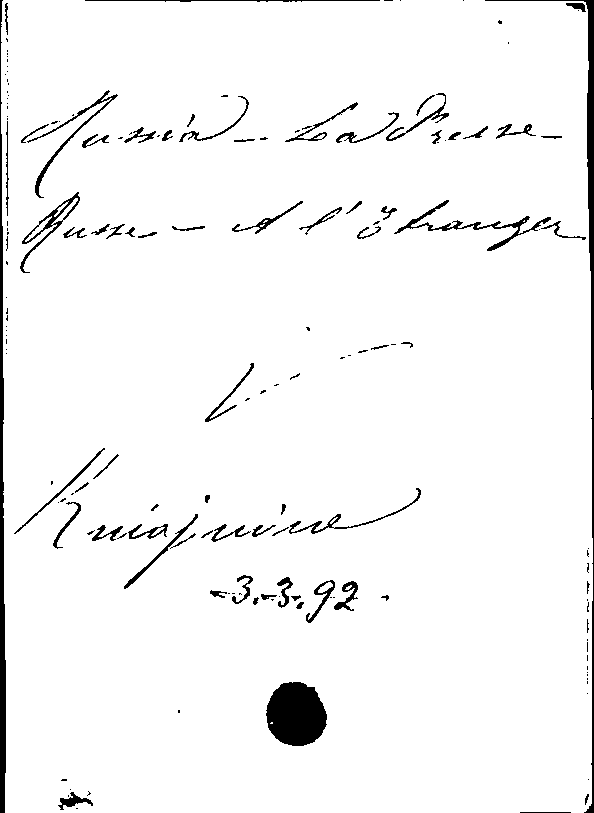 Russia - La Presse -
Russe - A l'Etranger
Kniajnine
3.3.92.